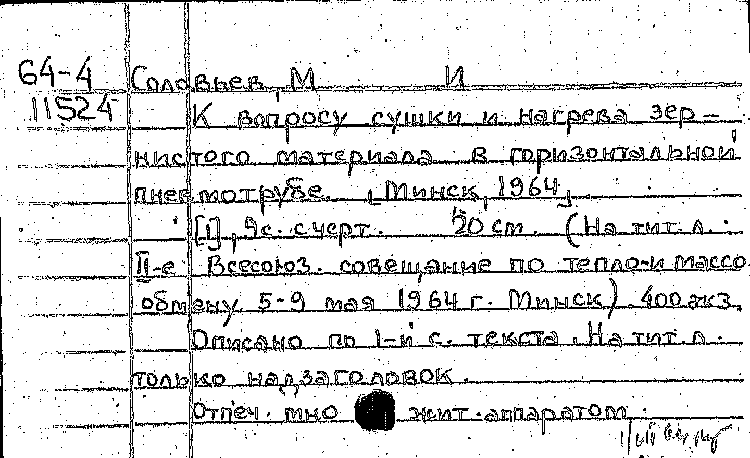 64-4 Соловьев, М И
11524 К вопросу сушки и нагрева зер-
нистого материала в горизонтальной
пневмотрубе. [Минск, 1964]
[1], 9 с. с черт. 20 см. (На тит. л.:
II-е Всесоюз. совещание по тепло- и массо
обмену. 5-9 мая 1964 г. Минск) 400 экз.
Описано по 1-й с. текста. На тит. л.
только надзаголовок.
Отпеч. мно жит. аппаратом